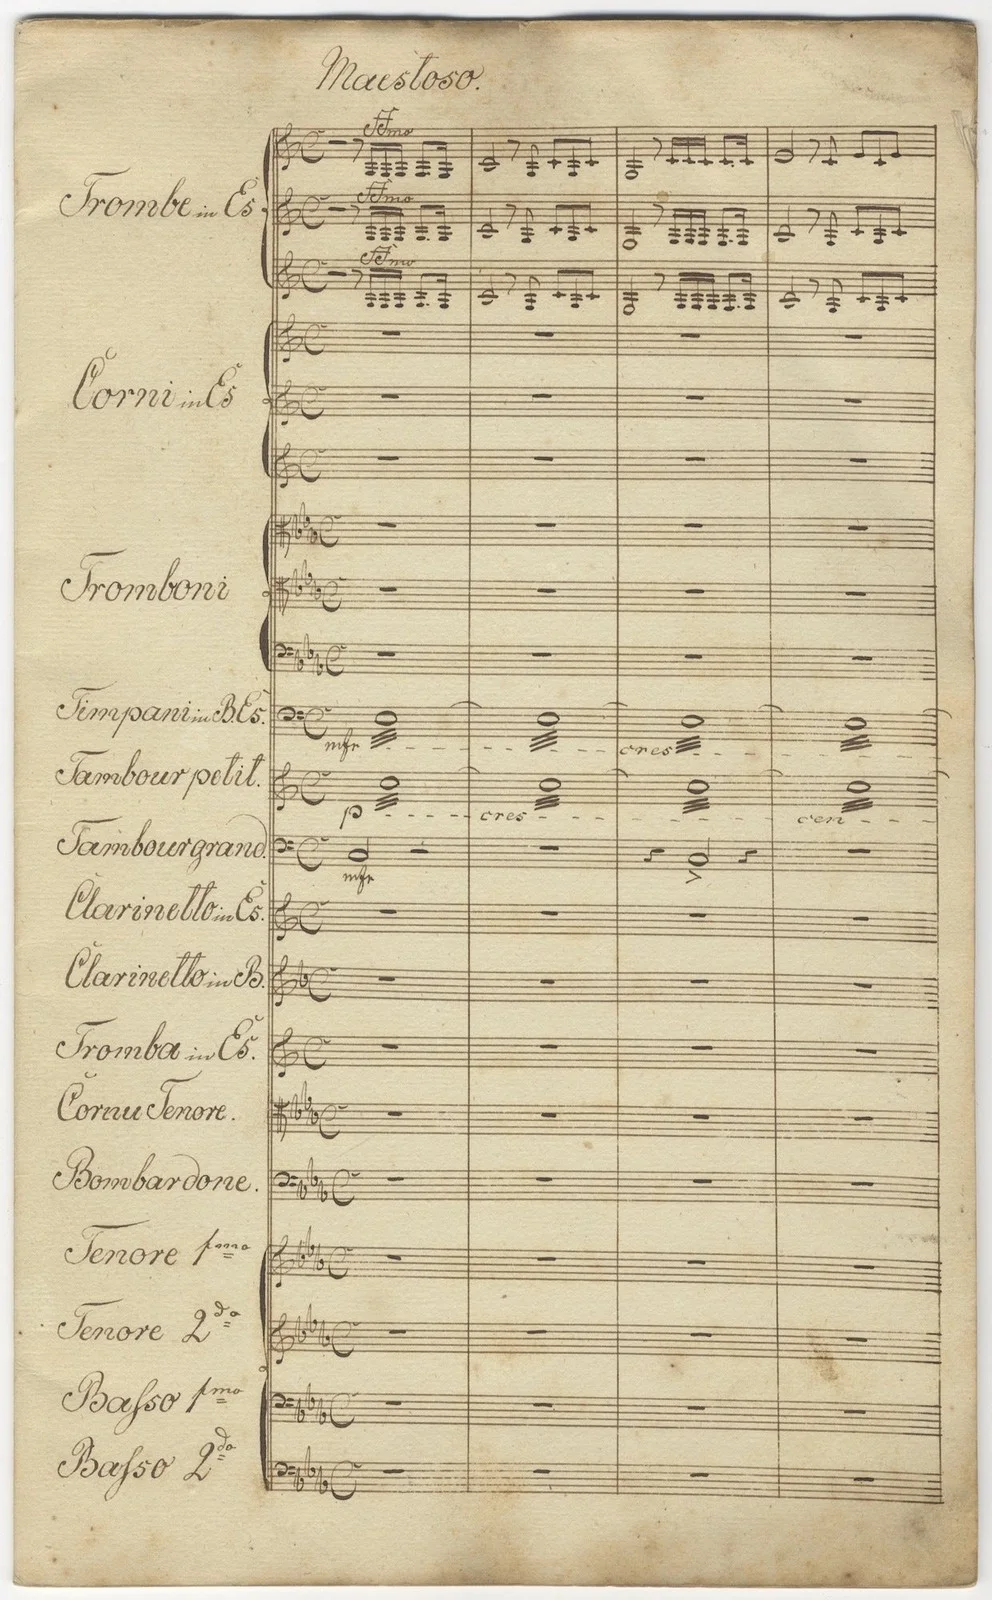 Maestoso.
FFmo
Trombe in Es
FFmo
FFmo
Corni in Es
Tromboni
Timpani in B.Es.
mfe cres
Tambour petit.
p cres cen
Tambour grand.
mfe
Clarinetto in Es.
Clarinetto in B.
Tromba in Es.
Cornu Tenore.
Bombardone.
Tenore 1mo
Tenore 2do
Baſso 1mo
Baſso 2do